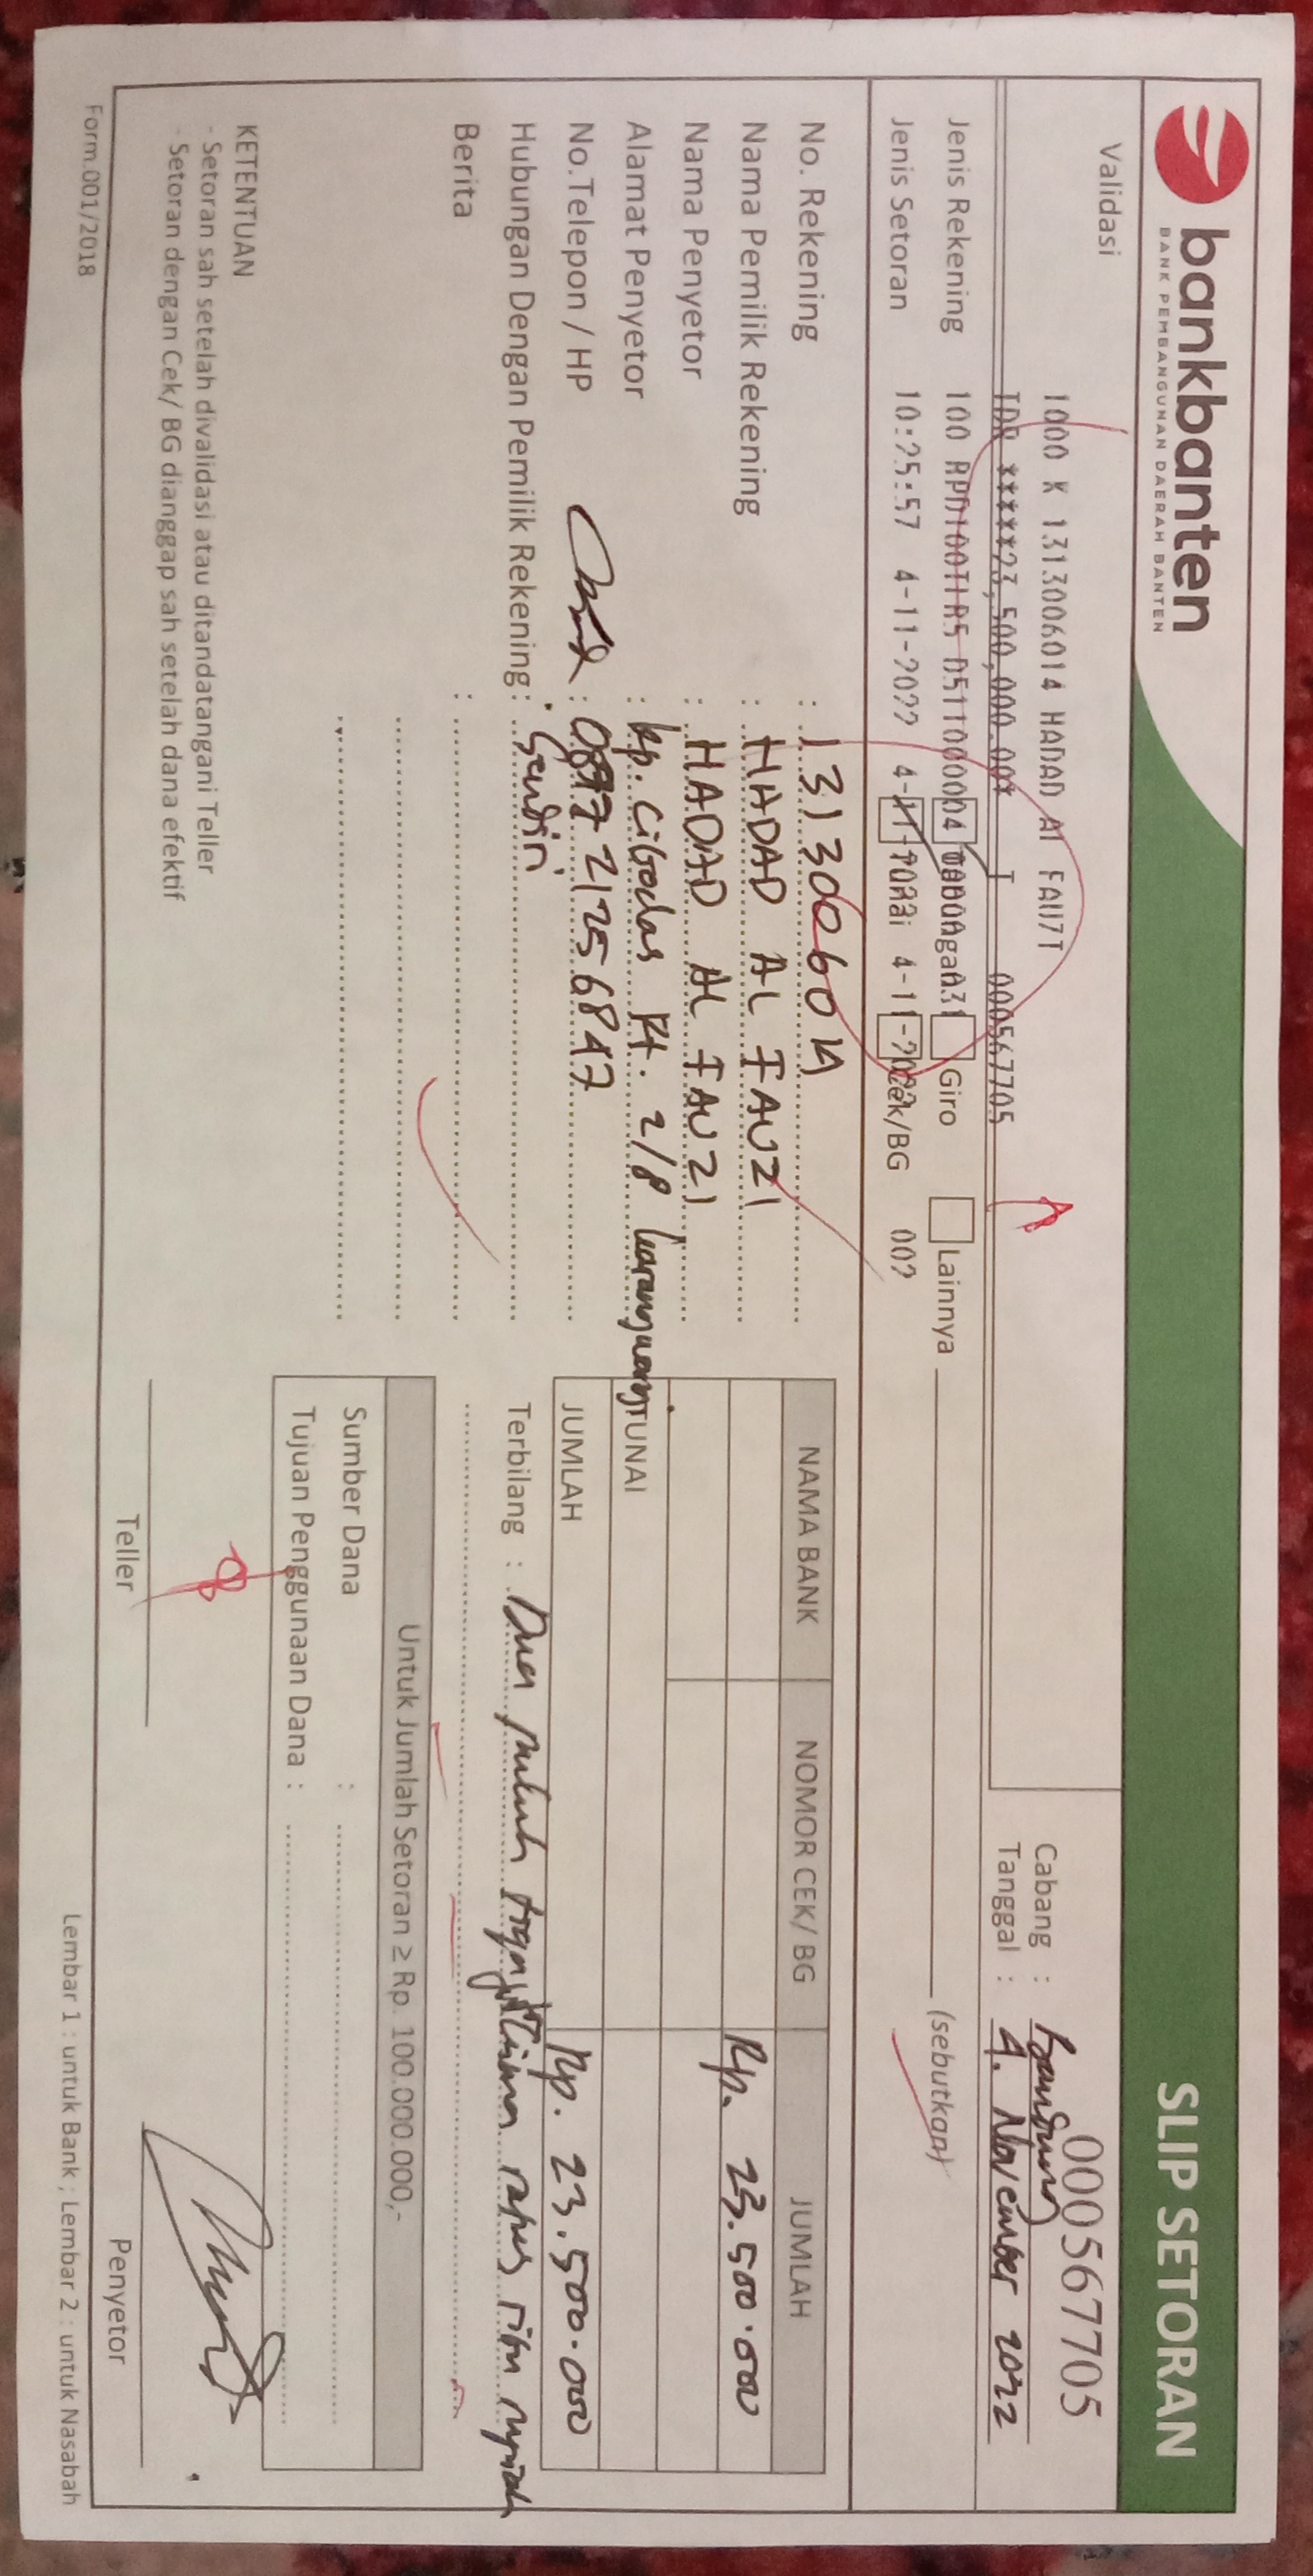 bankbanten
BANK PEMBANGUNAN DAERAH BANTEN
SLIP SETORAN
000567705
Validasi
1000 K 1313006014 HADAD Al FAUZI
IDR ******23,500,000.00 T 000567705
Cabang : bandung
Tanggal : 4. November 2022
Jenis Rekening 100 Giro Lainnya (sebutkan)
Jenis Setoran 10:25:57 4-11-2022 Cek/BG 002
No. Rekening : 1313006014
Nama Pemilik Rekening : HADAD AL FAUZI
Nama Penyetor : HADAD AL FAUZI
Alamat Penyetor : kp. Cibodas Rt. 2/8
No.Telepon / HP : 087721256847
Hubungan Dengan Pemilik Rekening : Sendiri
Berita :
NAMA BANK NOMOR CEK/ BG JUMLAH
Rp. 23.500.000
TUNAI
JUMLAH Rp. 23.500.000
Terbilang : Dua puluh tiga juta lima ratus ribu rupiah
Untuk Jumlah Setoran ≥ Rp. 100.000.000,-
Sumber Dana :
Tujuan Penggunaan Dana :
KETENTUAN
- Setoran sah setelah divalidasi atau ditandatangani Teller
- Setoran dengan Cek/ BG dianggap sah setelah dana efektif
Teller
Penyetor
Form.001/2018
Lembar 1 : untuk Bank ; Lembar 2 : untuk Nasabah